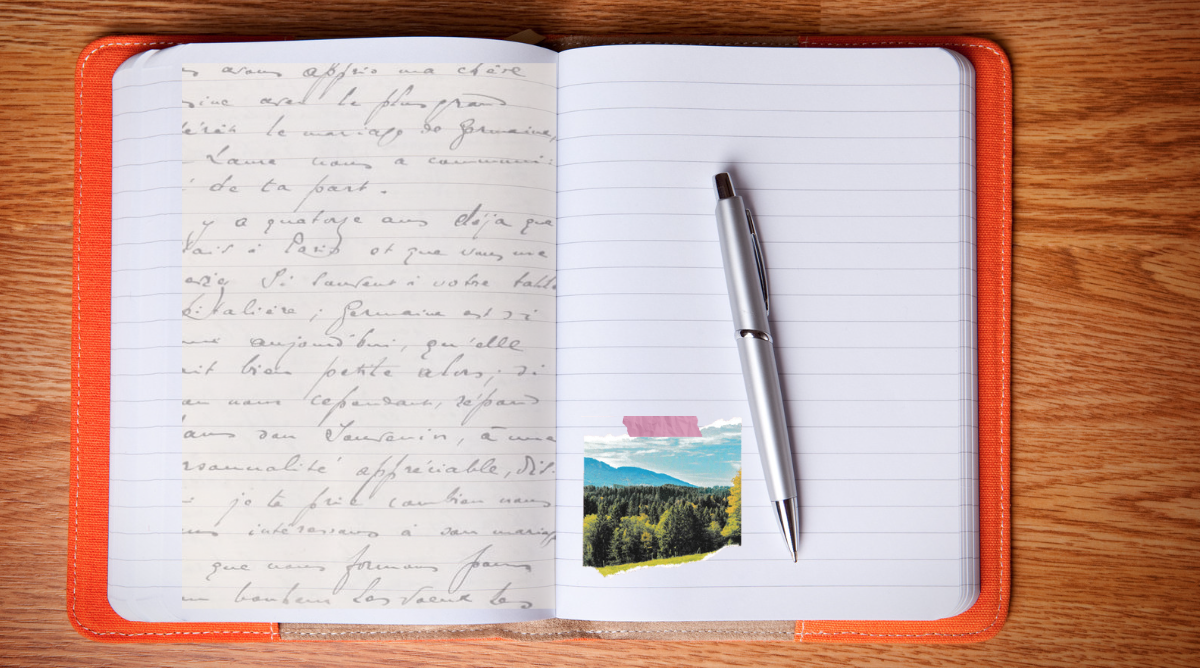 avons appris ma chère
avec le plus grand
le mariage de Germaine,
Laure nous a communi-
de ta part.
y a quatorze ans déjà que
à Paris et que vous me
Si souvent à votre table
pitalière ; Germaine est si
aujourd'hui, qu'elle
ait bien petite alors ; si
nous cependant, répond
dans son Souvenir, à une
rsonnalité appréciable, dis-
je te prie combien nous
intéressons à son mariage
que nous formons pour
bonheur les voeux les